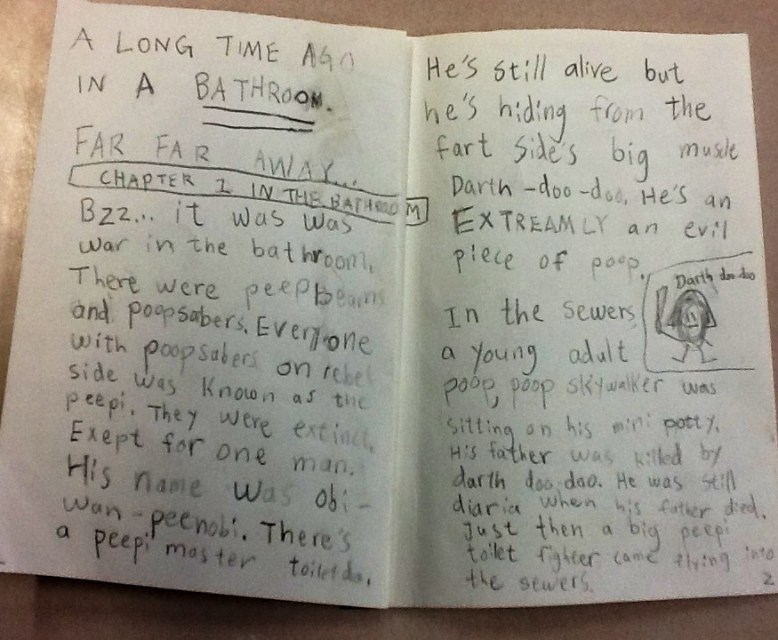 A LONG TIME AGO
IN A BATHROOM.
FAR FAR AWAY...
CHAPTER 1 IN THE BATHROOM
Bzz... it was was
war in the bathroom.
There were peepbeams
and poopsabers. Everyone
with poopsabers on rebel
side was known as the
peepi. They were extinct.
Exept for one man.
His name was obi-
wan-peenobi. There's
a peepi master toiletda.
He's still alive but
he's hiding from the
fart side's big muscle
Darth-doo-doo. He's an
EXTREAMLY an evil
piece of poop.
Darth doo doo
In the sewers
a young adult
poop, poop skywalker was
sitting on his mini potty.
His father was killed by
darth doo doo. He was still
diaria when his father died.
Just then a big peepi
toilet fighter came flying into
the sewers.
2